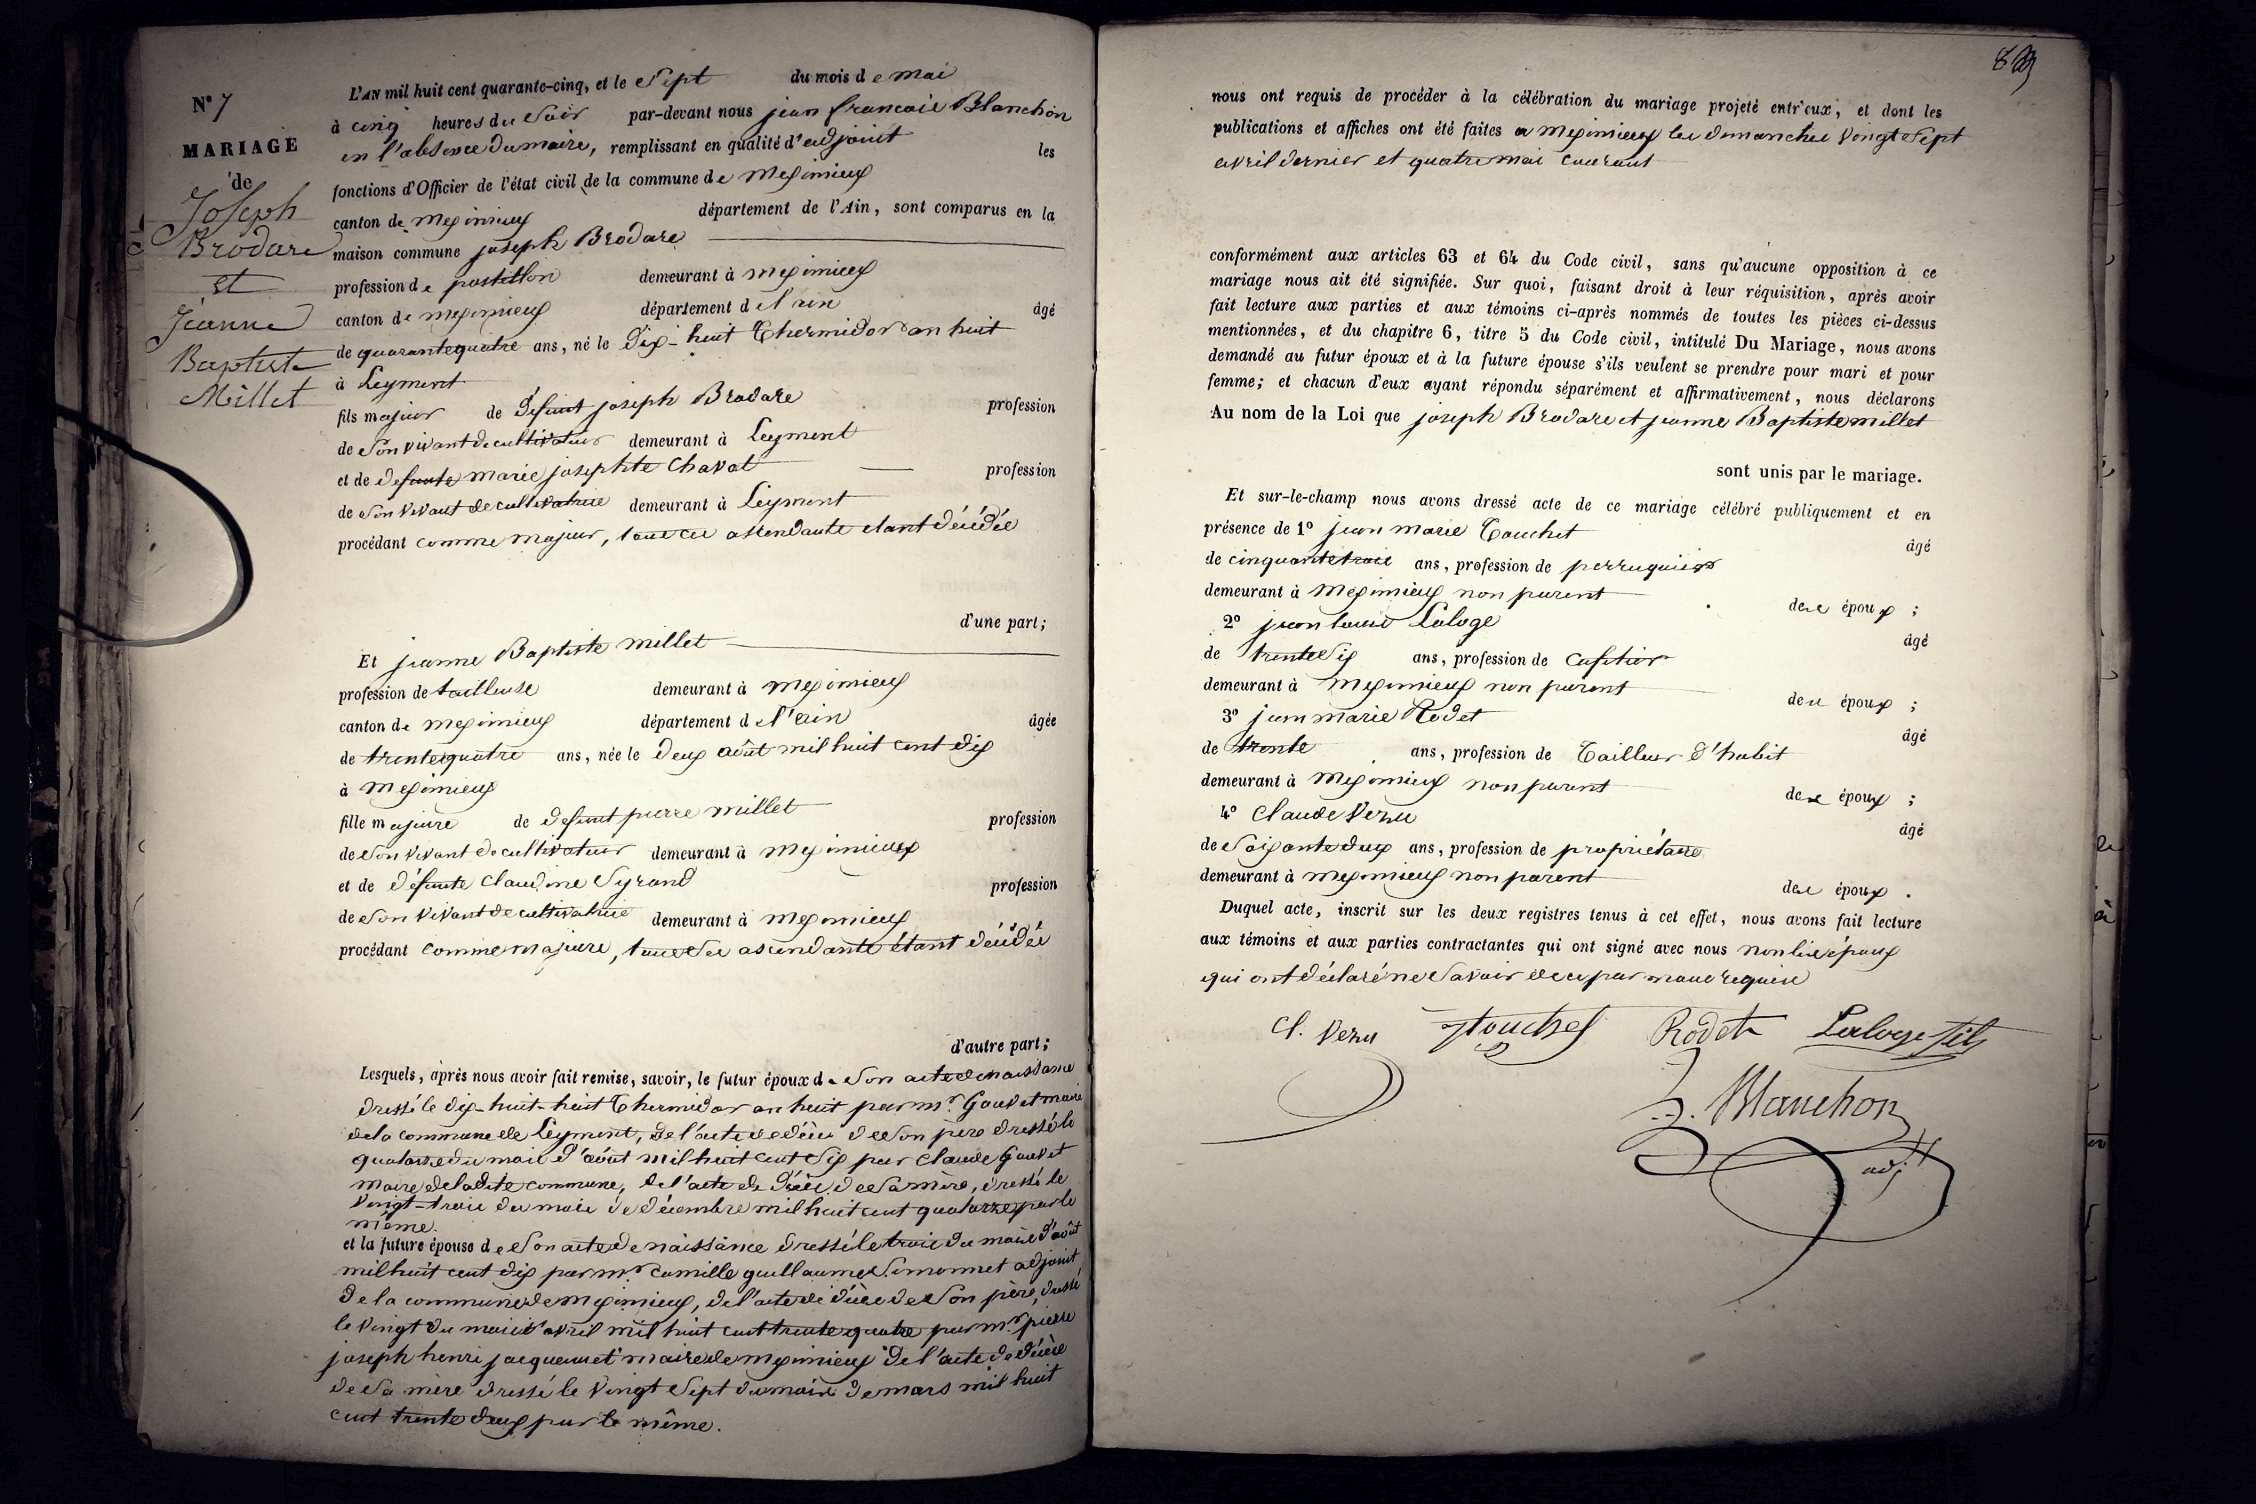 N° 7
MARIAGE
de
Joseph
Brodare
et
Jeanne
Baptiste
Millet
L'AN mil huit cent quarante-cinq, et le Sept du mois de mai
à cinq heures du Soir par-devant nous jean francois Blanchon
en l'absence du maire, remplissant en qualité d'adjoint les
fonctions d'Officier de l'état civil de la commune de meximieux
canton de meximieux département de l'Ain, sont comparus en la
maison commune joseph Brodare
profession de postillon demeurant à meximieux
canton de meximieux département de l'ain âgé
de quarantequatre ans, né le Dix-huit Thermidor an huit
à Leyment
fils majeur de Défunt joseph Brodare profession
de Son vivant de cultivateur demeurant à Leyment
et de défunte marie josephte Chavat profession
de Son vivant de cultivatrice demeurant à Leyment
procédant comme majeur, tous ces ascendants etant décédés
d'une part;
Et jeanne Baptiste millet
profession de tailleuse demeurant à meximieux
canton de meximieux département de l'ain âgée
de trentequatre ans, née le deux août mil huit cent dix
à meximieux
fille majeure de defunt pierre millet profession
de Son vivant de cultivateur demeurant à meximieux
et de défunte Claudine Syrand profession
de Son vivant de cultivatrice demeurant à meximieux
procédant comme majeure, tous Ses ascendants étant décédés
d'autre part;
Lesquels, après nous avoir fait remise, savoir, le futur époux de Son acte de naissance
dressé le dix-huit-huit Thermidor an huit par mr. Gouvet maire
de la commune de Leyment, de l'acte de décès de Son père dressé le
quatorze du mois d'août mil huit cent Six par Claude Gouvet
maire de ladite commune, de l'acte de décès de Sa mère, dressé le
vingt-trois du mois de décembre mil huit cent quatorze par le
même.
et la future épouse de Son acte de naissance dressé le trois du mois d'août
mil huit cent dix par mr. Camille guillaume Simonnet adjoint
de la commune de meximieux, de l'acte de décès de Son père, dressé
le vingt du mois d'avril mil huit cent trente quatre par mr. pierre
joseph henri jacquemet maire de meximieux de l'acte de décès
de Sa mère dressé le vingt Sept du mois de mars mil huit
cent trente deux par le même.
nous ont requis de procéder à la célébration du mariage projeté entr'eux, et dont les
publications et affiches ont été faites a meximieux les dimanches vingt Sept
avril dernier et quatre mai courant
conformément aux articles 63 et 64 du Code civil, sans qu'aucune opposition à ce
mariage nous ait été signifiée. Sur quoi, faisant droit à leur réquisition, après avoir
fait lecture aux parties et aux témoins ci-après nommés de toutes les pièces ci-dessus
mentionnées, et du chapitre 6, titre 5 du Code civil, intitulé Du Mariage, nous avons
demandé au futur époux et à la future épouse s'ils veulent se prendre pour mari et pour
femme; et chacun d'eux ayant répondu séparément et affirmativement, nous déclarons
Au nom de la Loi que joseph Brodare et jeanne Baptiste millet
sont unis par le mariage.
Et sur-le-champ nous avons dressé acte de ce mariage célébré publiquement et en
présence de 1° jean marie Touchet âgé
de cinquantetrois ans, profession de perruquier
demeurant à meximieux non parent des époux ;
2° jean louis Laloge âgé
de trenteSix ans, profession de Cafetier
demeurant à meximieux non parent des époux ;
3° jean marie Rodet âgé
de trente ans, profession de Tailleur d'habit
demeurant à meximieux non parent des époux ;
4° Claude Vernu âgé
de Soixantedeux ans, profession de propriétaire
demeurant à meximieux non parent des époux .
Duquel acte, inscrit sur les deux registres tenus à cet effet, nous avons fait lecture
aux témoins et aux parties contractantes qui ont signé avec nous non les époux
qui ont déclaré ne Savoir de ce par nous requis
Cl. Vernu Touchet Rodet Laloge fils
J. Blanchon
adj